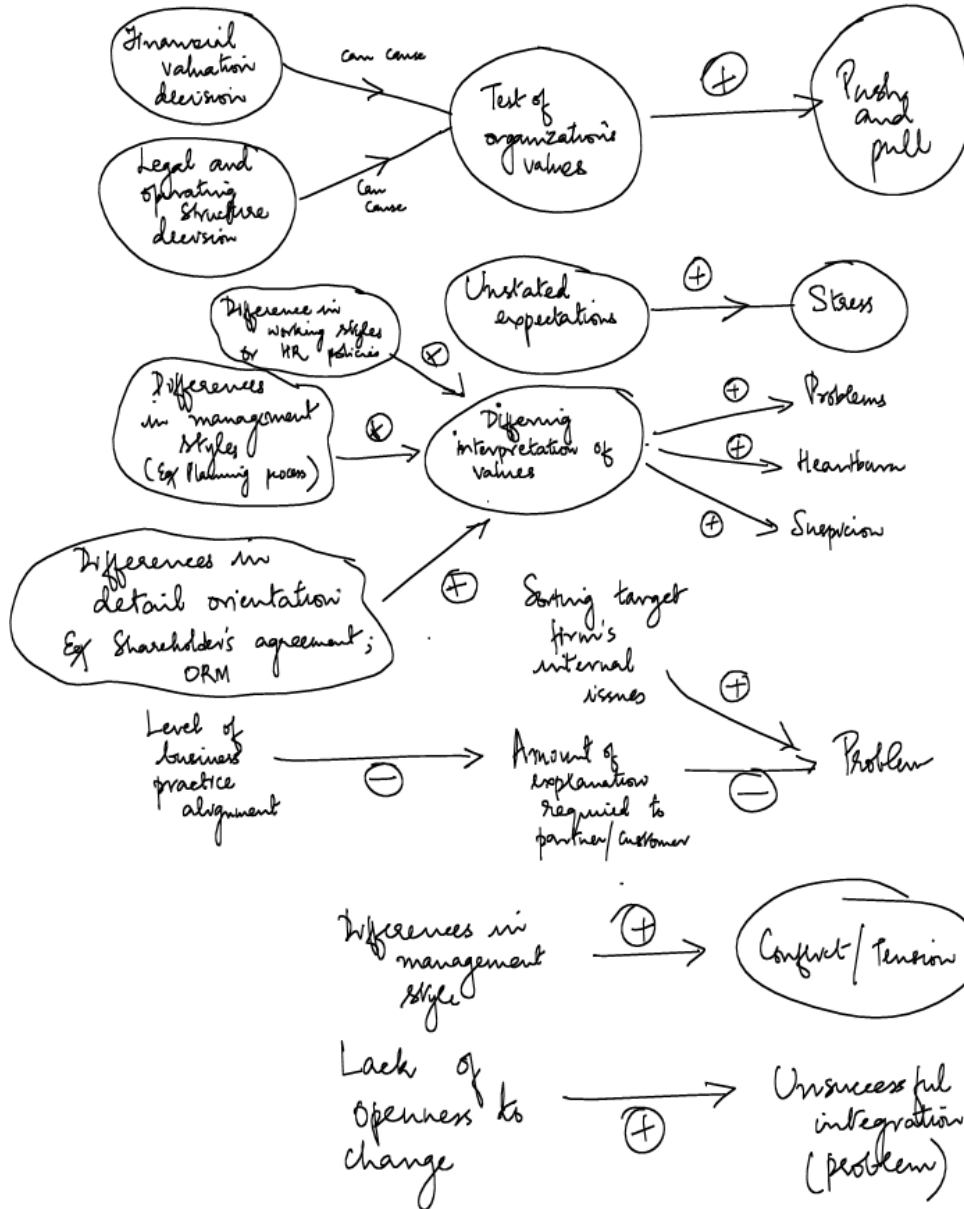 Financial
valuation
decision
can cause
Test of
organization's
values
+
Push
and
pull
Legal and
operating
structure
decision
can
cause
Unstated
expectations
+
Stress
Difference in
working styles
or HR policies
+
Differences
in management
styles
(Eg Planning process)
+
Differing
interpretation of
values
+
Problems
+
Heartburn
+
Suspicion
Differences in
detail orientation
Eg Shareholder's agreement;
ORM
+
Sorting target
firm's
internal
issues
+
Level of
business
practice
alignment
−
Amount of
explanation
required to
partner/customer
−
Problem
Differences in
management
style
+
Conflict/Tension
Lack of
openness to
change
+
Unsuccessful
integration
(problem)